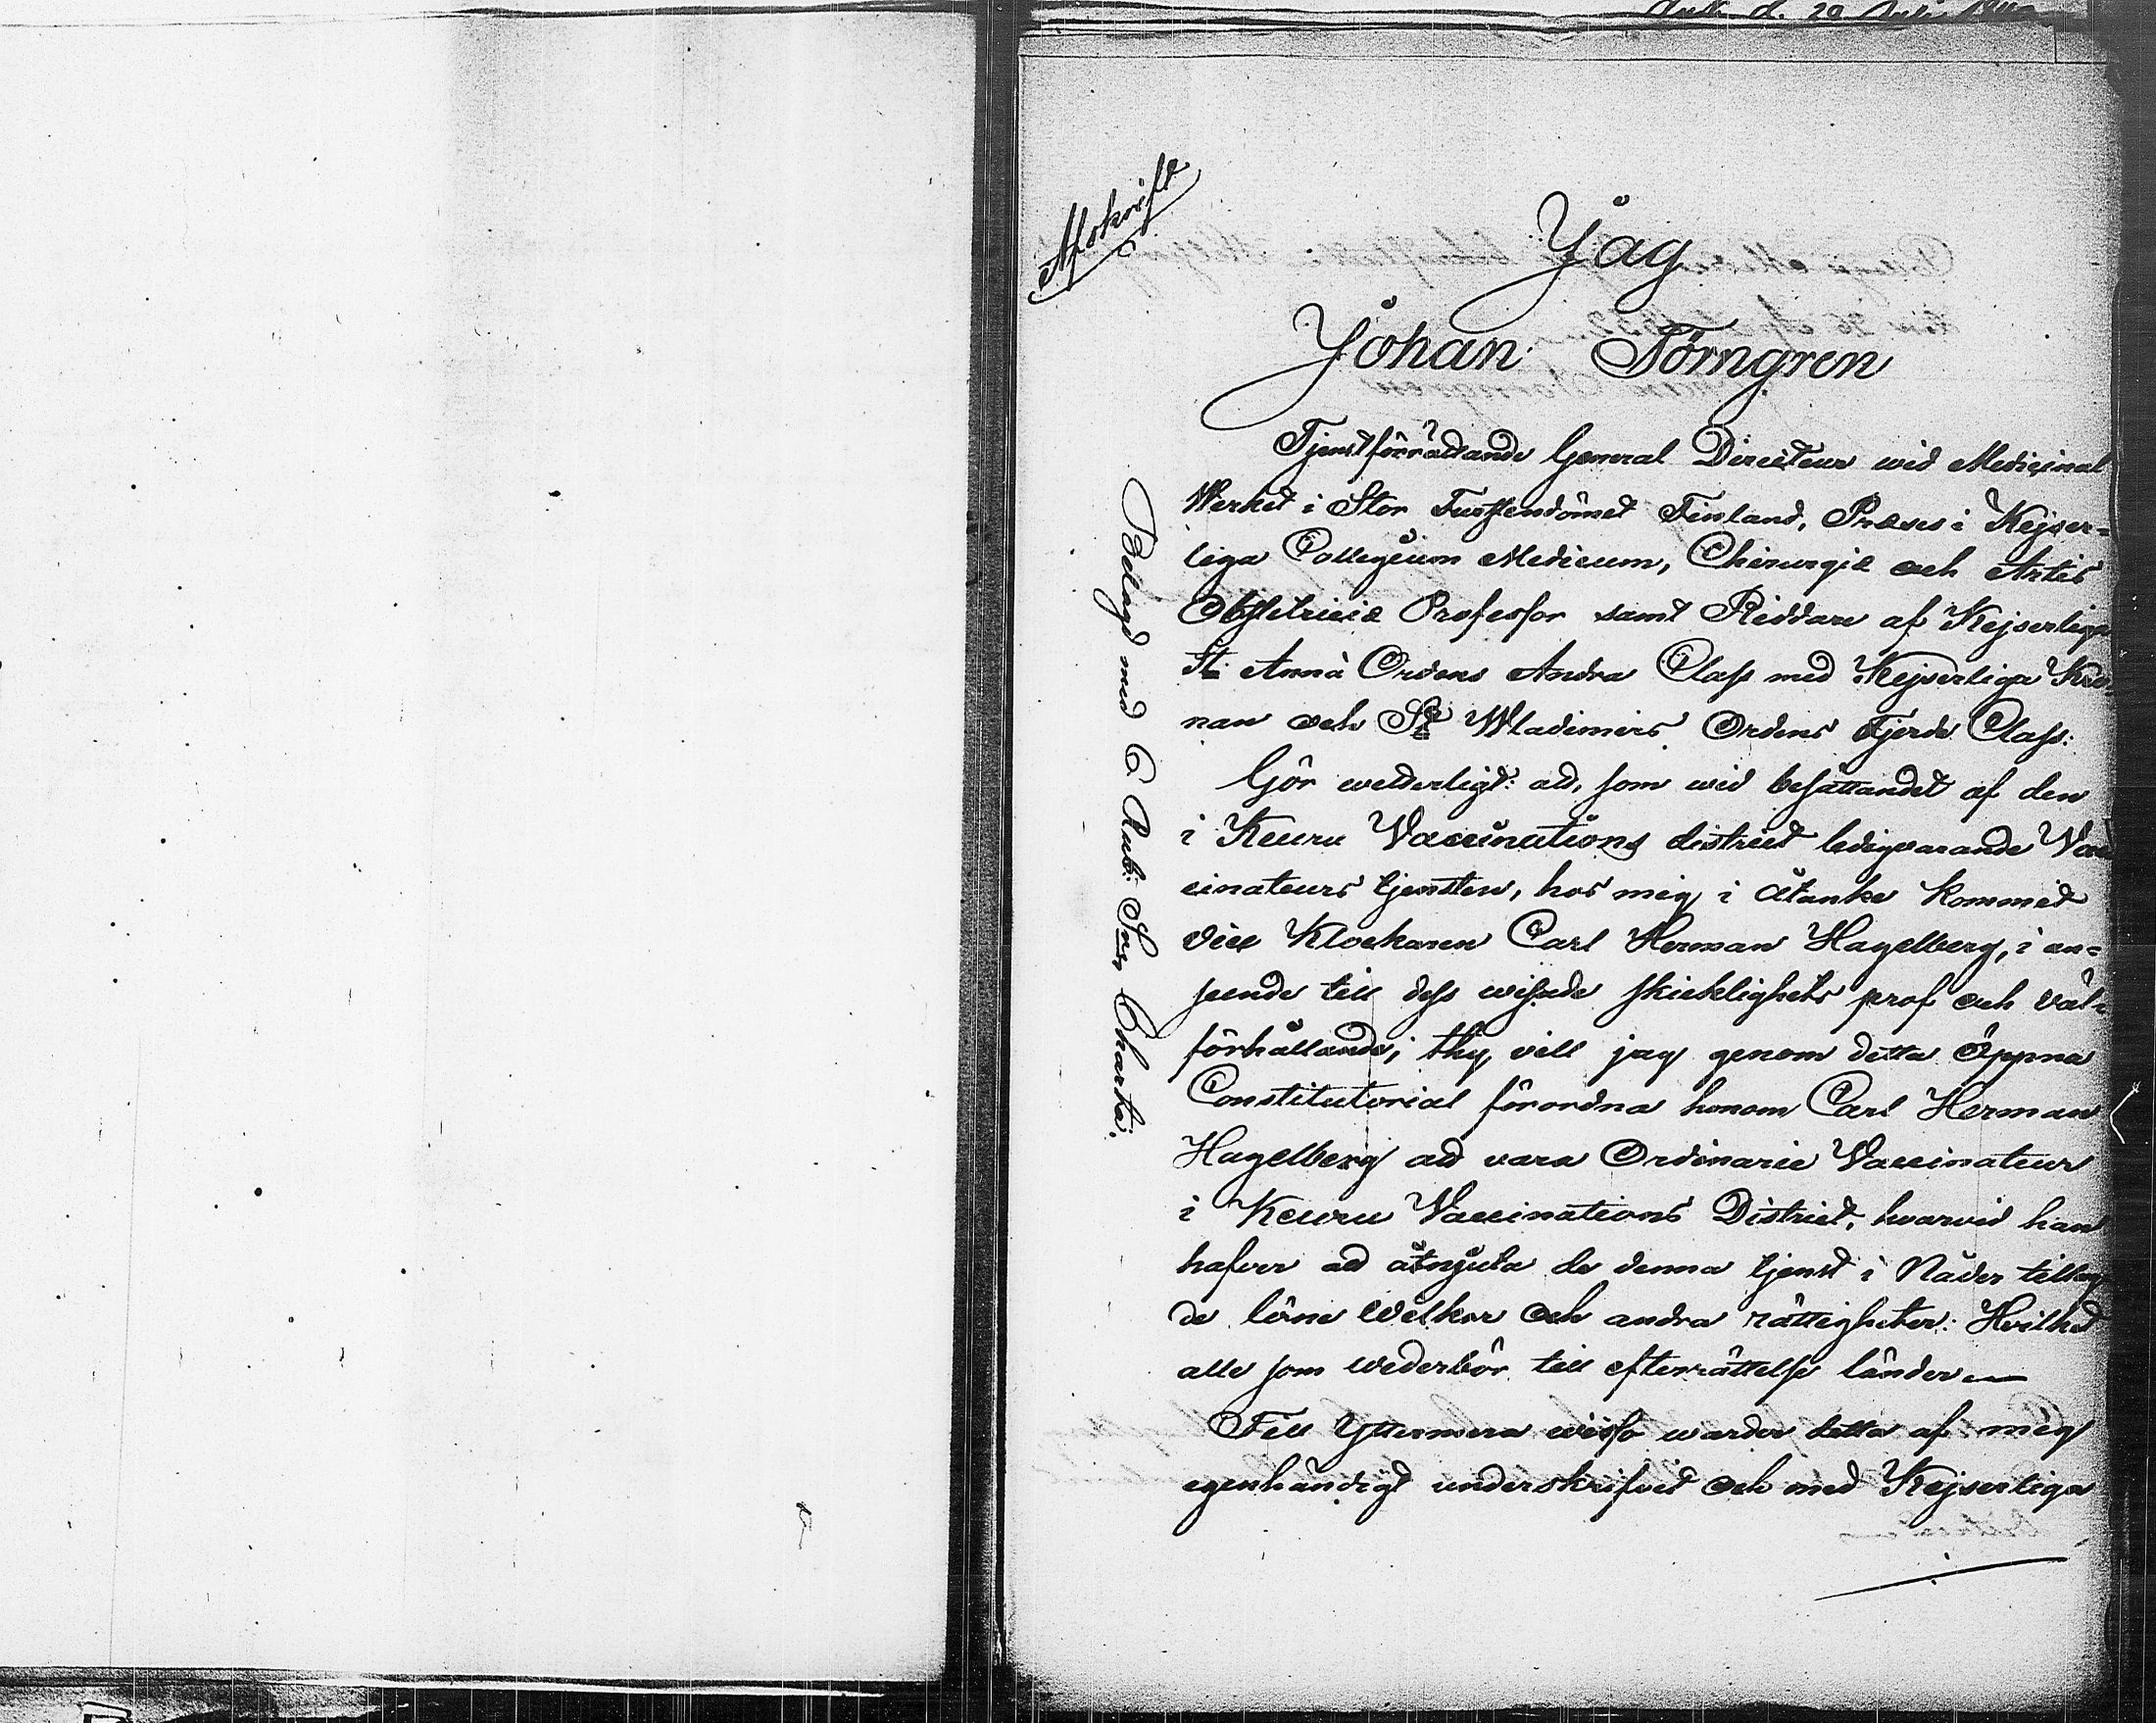 Afskrift
Jag
Johan Törngren
Tjenstförrättande General Directeur wid Medicinal
Werket i Stor Furstendömet Finland, Præses i Kejser-
liga Collegium Medicum, Chirurgiæ och Artis
Obstetriciæ Professor samt Riddare af Kejserliga
St: Annæ Ordens Andra Class med Kejserliga Kro-
nan och St Wladimirs Ordens Fjerde Class:
Gör wetterligt: att, som wid besättandet af den
i Keuru Vaccinations district ledigvarande Vac
cinateurs tjensten, hos mig i åtanke kommit
Vice Klockaren Carl Herman Hagelberg, i an-
seende till dess wisade skicklighets prof och väl-
förhållande; thy vill jag genom detta öppna
Constitutorial förordna honom Carl Herman
Hagelberg att vara Ordinarie Vaccinateur
i Keuru Vaccinations District, hvarvid han
hafver att åtnjuta de denna tjenst i Nåder tillag
de löne wilkor och andra rättigheter: Hvilket
alle som wederbör till efterrättelse länder
Till yttermera wisso warder detta af mig
egenhändigt underskrifvet och med Kejserliga
Belagd med 6 Rub: Slfr Charta.